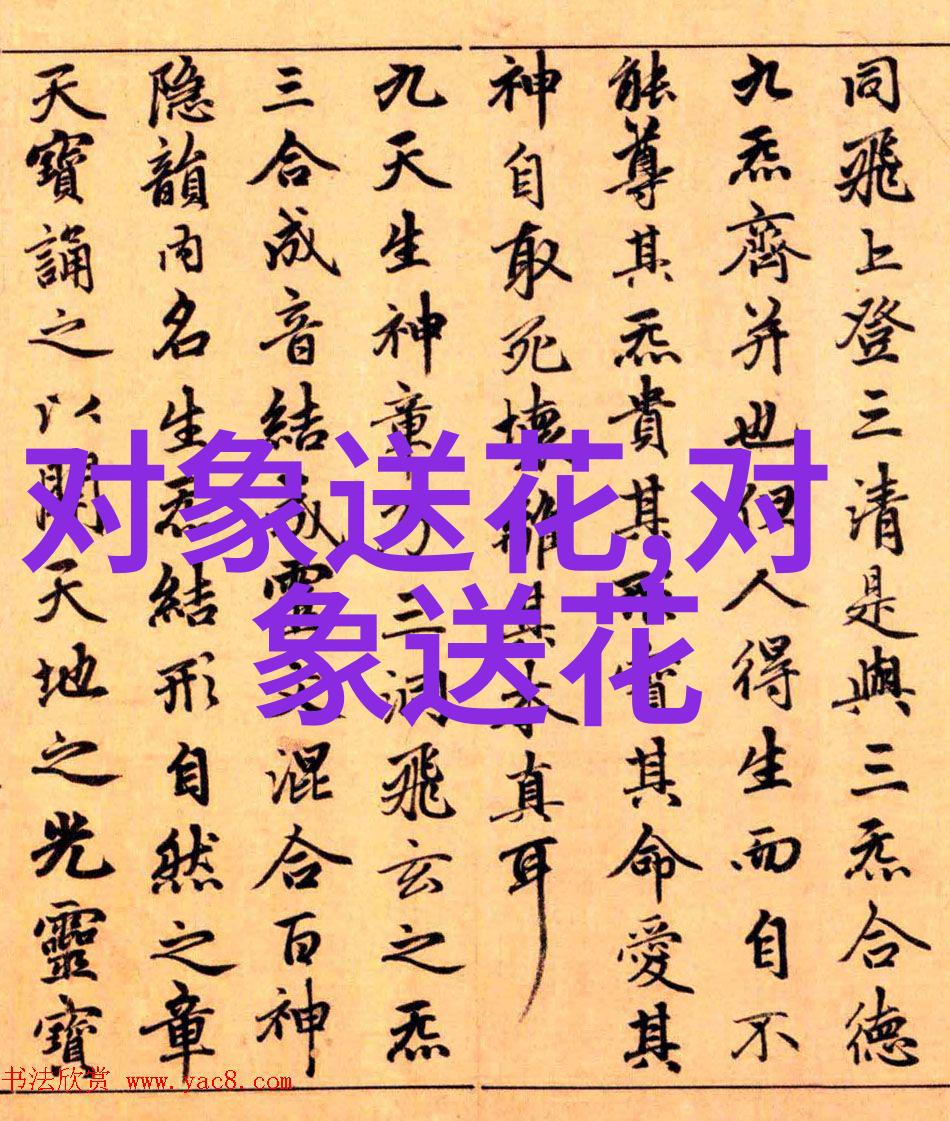 同飛上登三清是與三炁合德
九炁齊并也但人得生而自不
能尊其炁貴其形寶其命愛其
神自取死壞離其本真耳
九天生神章乃三洞飛玄之炁
三合成音結成靈文混合百神
隐韻内名生炁結形自然之章
天寶誦之以開天地之光靈寶
对象送花,对
象送花
书法欣赏 www.yac8.com